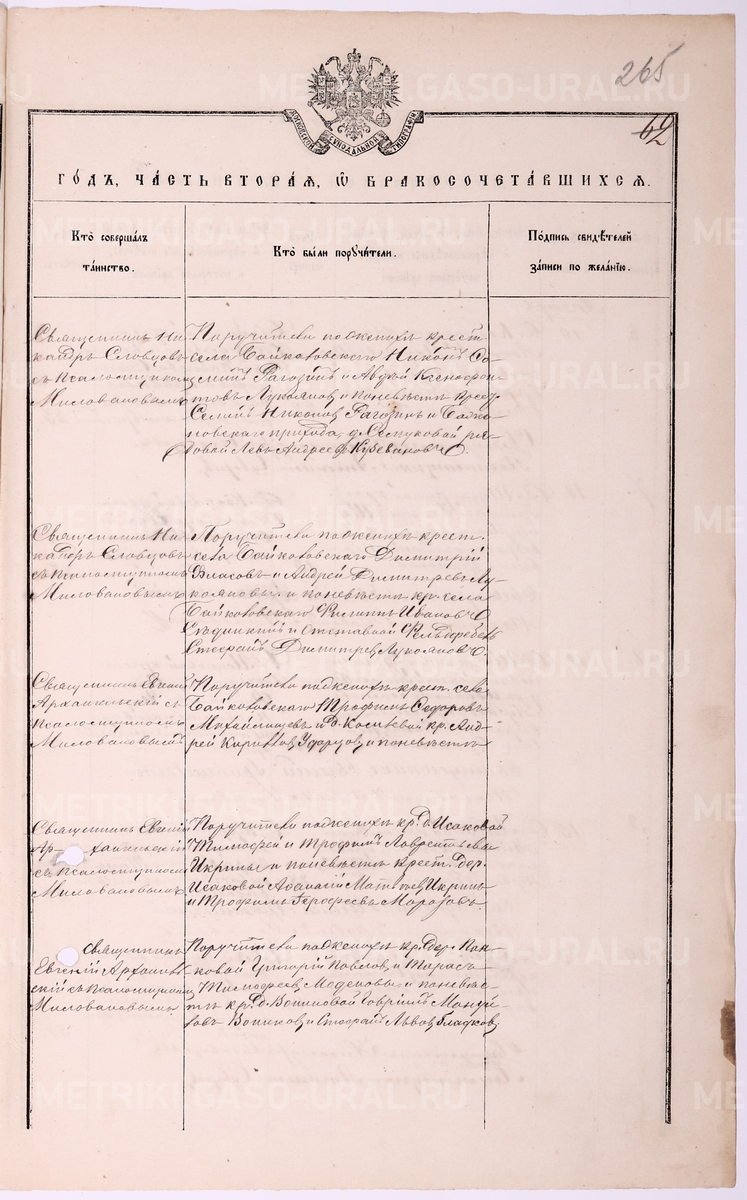 265
62
МОСКОВСКОЙ СѴНОДАЛЬНОЙ ТИПОГРАФІИ
ГО́ДЪ, ЧА́СТЬ ВТОРА́Я, Ѡ҆ БРАКОСОЧЕТА́ВШИХСЯ.
Кто̀ совершалъ
та́инство.
Кто̀ были пору́чители.
По́дпись свидѣ́телей
за́писи по жела́нію.
Священникъ Ни
кандръ Словцовъ
съ псаломщикомъ
Миловановымъ
Поручители по женихѣ крест.
села Байкаловскаго Никонъ
Рагозинъ и Авдей Ксенофон
товъ Лукояновъ и по невѣстѣ крест.
Никоновъ Рагозинъ и Байка
ловскаго прихода, д. ря
довой Левъ Андреевъ
Священникъ Ни
кандръ Словцовъ
съ псаломщикомъ
Миловановымъ
Поручители по женихѣ крест.
села Байкаловскаго Димитрій
Власовъ и Андрей Димитревъ Лу
кояновы и по невѣстѣ кр. села
Байкаловскаго Филиппъ Ивановъ
и отставной
Стефанъ Димитревъ Лукояновъ.
Священникъ Евгеній
Архангельскій съ
псаломщикомъ
Миловановымъ
Поручители по женихѣ крест. села
Байкаловскаго Трофимъ Сидоровъ
и д. кр. Анд
рей и по невѣстѣ
Священникъ Евгеній
Архангельскій
съ псаломщикомъ
Миловановымъ
Поручители по женихѣ кр. д. Исаковой
Тимофей и Трофимъ Лаврентьевы
Икрины и по невѣстѣ крест. дер.
Исаковой Афанасій Матвѣевъ Икринъ
и Трофимъ Морозовъ.
Священникъ
Евгеній Архангель
скій съ псаломщикомъ
Миловановымъ
Поручители по женихѣ кр. дер. Пан
ковой Григорій Павловъ и Тарасъ
Тимофеевъ и по невѣс
тѣ кр. д. Вониновой Гаврійлъ
Вонинов и Стефанъ Львовъ Гладковъ
METRIKI.GASO-URAL.RU